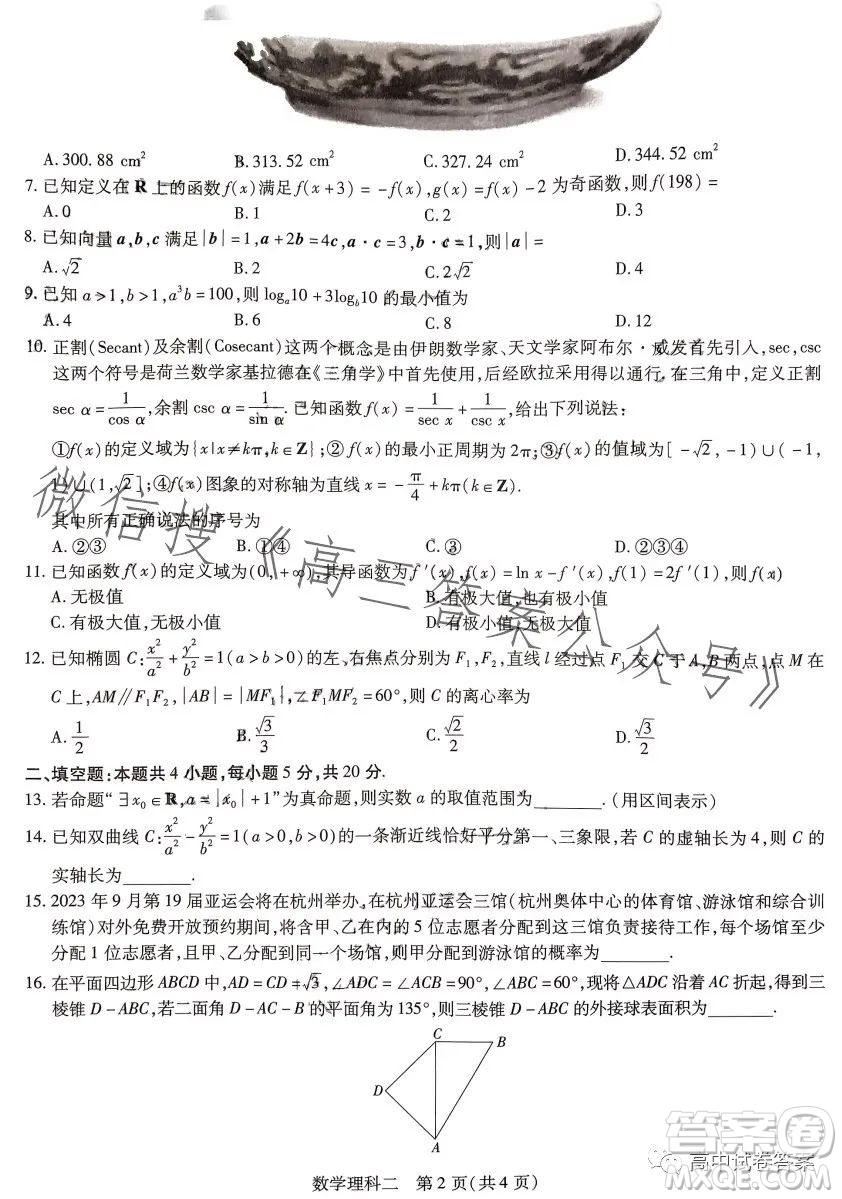 A. 300. 88 cm² B. 313. 52 cm² C. 327. 24 cm² D. 344. 52 cm²
7. 已知定义在 R 上的函数 f(x)满足 f(x+3) = -f(x),g(x)=f(x)-2 为奇函数,则 f(198) =
A. 0 B. 1 C. 2 D. 3
8. 已知向量 a,b,c 满足|b|=1,a+2b=4c,a·c=3,b·c=1,则|a|=
A. √2 B. 2 C. 2√2 D. 4
9. 已知 a>1,b>1,a³b=100,则 logₐ10+3log_b10 的最小值为
A. 4 B. 6 C. 8 D. 12
10. 正割(Secant)及余割(Cosecant)这两个概念是由伊朗数学家、天文学家阿布尔·威发首先引入,sec,csc
这两个符号是荷兰数学家基拉德在《三角学》中首先使用,后经欧拉采用得以通行. 在三角中,定义正割
sec α=1/cos α,余割 csc α=1/sin α. 已知函数 f(x)=1/sec x+1/csc x,给出下列说法:
①f(x)的定义域为{x|x≠kπ,k∈Z};②f(x)的最小正周期为 2π;③f(x)的值域为[-√2,-1)∪(-1,
1)∪(1,√2];④f(x)图象的对称轴为直线 x=-π/4+kπ(k∈Z).
其中所有正确说法的序号为
A. ②③ B. ①④ C. ③ D. ②③④
11. 已知函数 f(x)的定义域为(0,+∞),其导函数为 f′(x),f(x)=ln x-f′(x),f(1)=2f′(1),则 f(x)
A. 无极值 B. 有极大值,也有极小值
C. 有极大值,无极小值 D. 有极小值,无极大值
12. 已知椭圆 C:x²/a²+y²/b²=1(a>b>0)的左、右焦点分别为 F₁,F₂,直线 l 经过点 F₁ 交 C 于 A,B 两点,点 M 在
C 上,AM∥F₁F₂,|AB|=|MF₁|,∠F₁MF₂=60°,则 C 的离心率为
A. 1/2 B. √3/3 C. √2/2 D. √3/2
二、填空题:本题共 4 小题,每小题 5 分,共 20 分.
13. 若命题“∃x₀∈R,a=|x₀|+1”为真命题,则实数 a 的取值范围为________. (用区间表示)
14. 已知双曲线 C:x²/a²-y²/b²=1(a>0,b>0)的一条渐近线恰好平分第一、三象限,若 C 的虚轴长为 4,则 C 的
实轴长为________.
15. 2023 年 9 月第 19 届亚运会将在杭州举办. 在杭州亚运会三馆(杭州奥体中心的体育馆、游泳馆和综合训
练馆)对外免费开放预约期间,将含甲、乙在内的 5 位志愿者分配到这三馆负责接待工作,每个场馆至少
分配 1 位志愿者,且甲、乙分配到同一个场馆,则甲分配到游泳馆的概率为________.
16. 在平面四边形 ABCD 中,AD=CD=√3,∠ADC=∠ACB=90°,∠ABC=60°,现将△ADC 沿着 AC 折起,得到三
棱锥 D-ABC,若二面角 D-AC-B 的平面角为 135°,则三棱锥 D-ABC 的外接球表面积为________.
C B
D
A
数学理科二 第 2 页(共 4 页)
微信搜《高三答案公众号》
高中试卷答案
答案卷
MXQE.COM